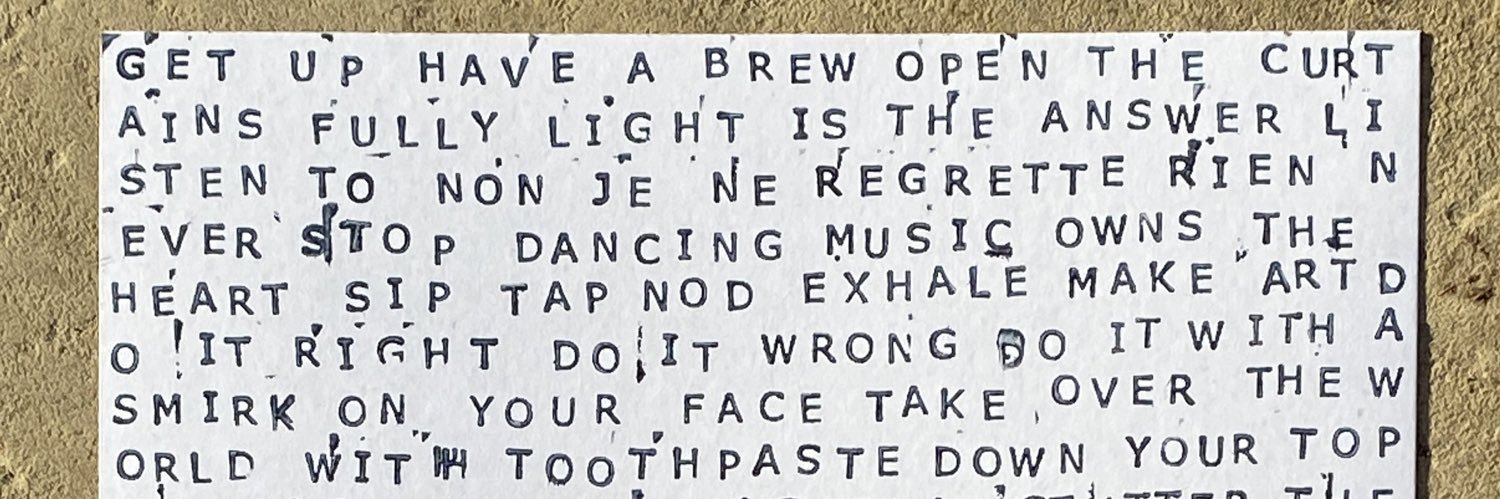 GET UP HAVE A BREW OPEN THE CURT
AINS FULLY LIGHT IS THE ANSWER LI
STEN TO NON JE NE REGRETTE RIEN N
EVER STOP DANCING MUSIC OWNS THE
HEART SIP TAP NOD EXHALE MAKE ART D
O IT RIGHT DO IT WRONG DO IT WITH A
SMIRK ON YOUR FACE TAKE OVER THE W
ORLD WITH TOOTHPASTE DOWN YOUR TOP